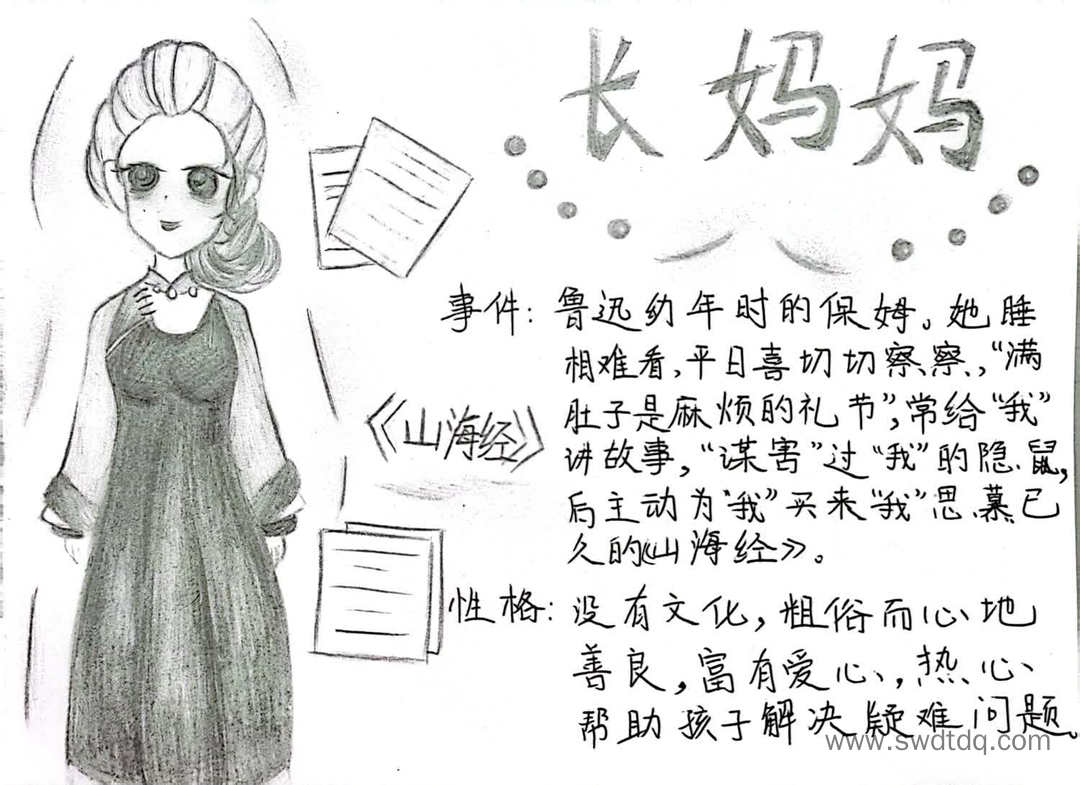 长妈妈
事件：鲁迅幼年时的保姆。她睡
相难看，平日喜切切察察，“满
肚子是麻烦的礼节”，常给“我”
讲故事，“谋害”过“我”的隐鼠，
后主动为“我”买来“我”思慕已
久的《山海经》。
《山海经》
性格：没有文化，粗俗而心地
善良，富有爱心，热心
帮助孩子解决疑难问题。
www.swdtdq.com